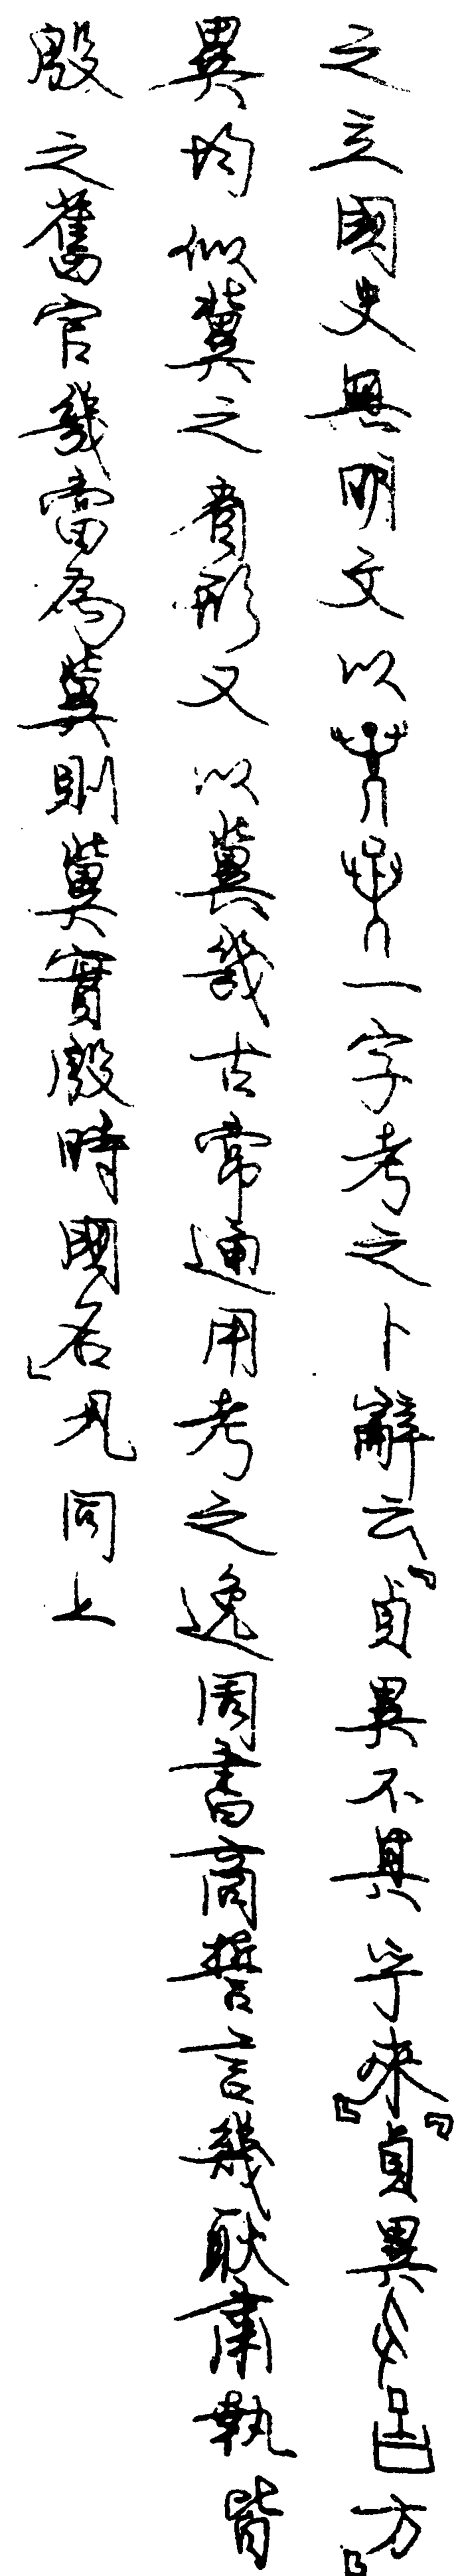 之立國史無明文以一字考之卜辭云『貞異不其乎來』『貞異𢀛方』
異均似冀之省形又以冀幾古常通用考之逸周書商誓言幾耿肅執皆
殷之舊官幾當為冀則冀實殷時國名」凡同上